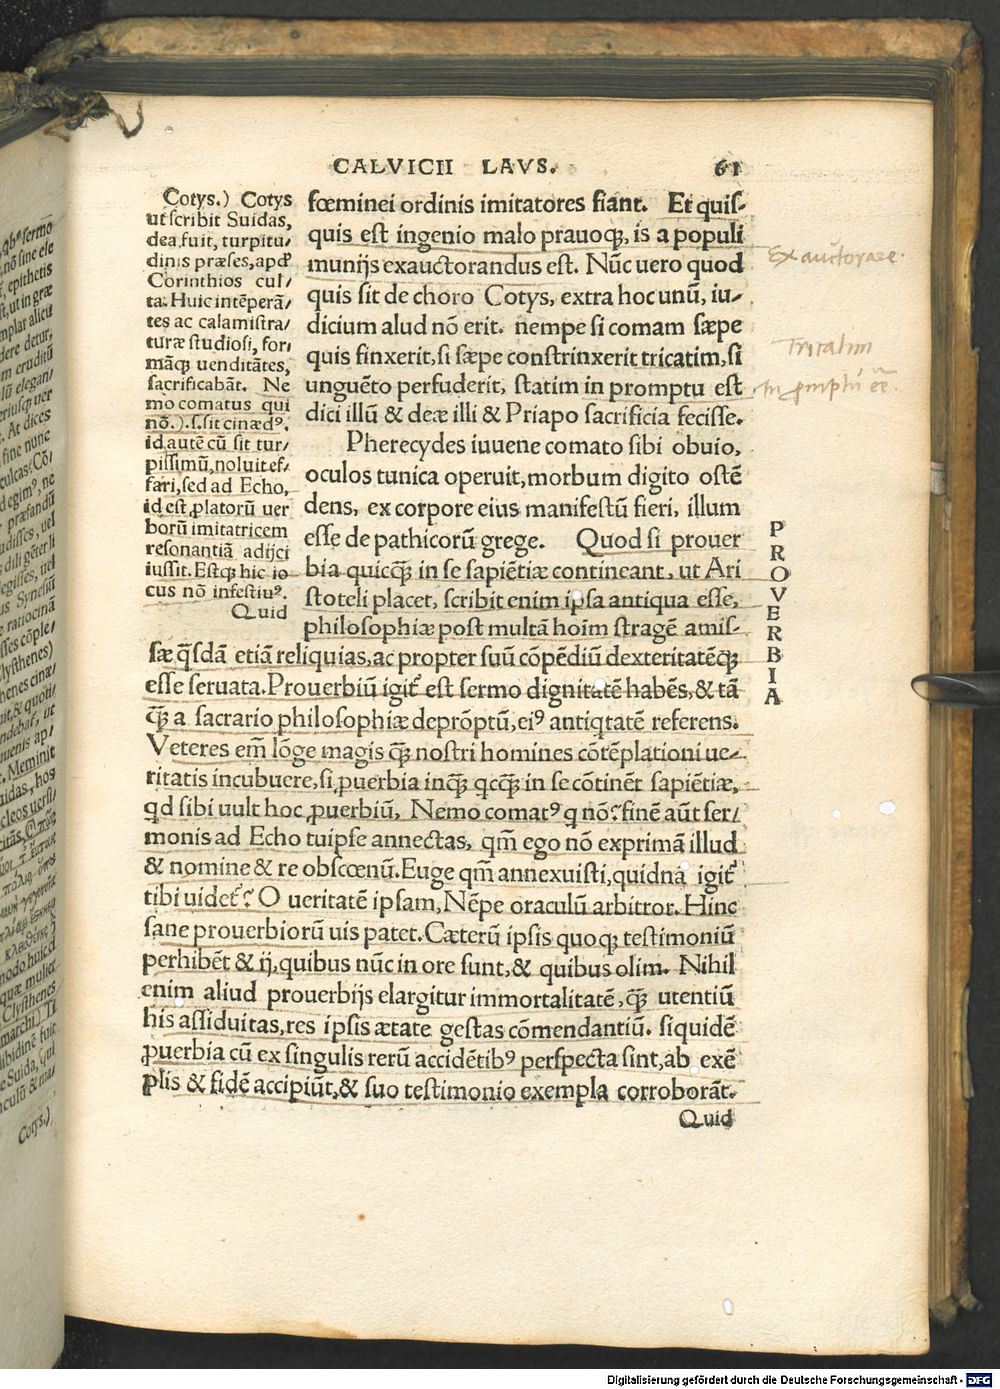 CALVICII LAVS. 61
Cotys.) Cotys
ut scribit Suidas,
dea fuit, turpitu/
dinis præses, apđ
Corinthios cul/
ta. Huic intẽperã/
tes ac calamistra/
turæ studiosi, for/
mãqꝫ uenditãtes,
sacrificabãt. Ne
mo comatus qui
nõ.).s. sit cinædꝰ.
id autẽ cũ sit tur/
pissimũ, noluit ef/
fari, sed ad Echo,
id est, platorũ uer
borũ imitatricem
resonantiã adijci
iussit. Estqꝫ hic io
cus nõ infestiuꝰ.
Quid
fœminei ordinis imitatores fiant. Et quis-
quis est ingenio malo prauoqꝫ, is a populi
munijs exauctorandus est. Nũc uero quod
quis sit de choro Cotys, extra hoc unũ, iu-
dicium alud nõ erit. nempe si comam sæpe
quis finxerit, si sæpe constrinxerit tricatim, si
unguẽto perfuderit, statim in promptu est
dici illũ & deæ illi & Priapo sacrificia fecisse.
Pherecydes iuuene comato sibi obuio,
oculos tunica operuit, morbum digito ostẽ
dens, ex corpore eius manifestũ fieri, illum
esse de pathicorũ grege. Quod si prouer
bia quicqꝫ̃ in se sapiẽtiæ contineant, ut Ari
stoteli placet, scribit enim ipsa antiqua esse,
philosophiæ post multã hoĩm stragẽ amis-
sæ q̃sdã etiã reliquias, ac propter suũ cõpẽdiũ dexteritatẽqꝫ
esse seruata. Prouerbiũ igit̃ est sermo dignitatẽ habẽs, & tã
qꝫ̃ a sacrario philosophiæ deprõptũ, eiꝰ antiqtatẽ referens.
Veteres em̃ lõge magis qꝫ̃ nostri homines cõtẽplationi ue-
ritatis incubuere, si ꝓuerbia inqꝫ̃ qcqꝫ̃ in se cõtinẽt sapiẽtiæ,
qd sibi uult hoc ꝓuerbiũ, Nemo comatꝰ q nõ? finẽ aũt ser/
monis ad Echo tuipse annectas, qm̃ ego nõ exprimã illud
& nomine & re obscœnũ. Euge qm̃ annexuisti, quidnã igit̃
tibi uidet̃? O ueritatẽ ipsam, Nẽpe oraculũ arbitror. Hinc
sane prouerbiorũ uis patet. Cæterũ ipsis quoqꝫ testimoniũ
perhibẽt & ij, quibus nũc in ore sunt, & quibus olim. Nihil
enim aliud prouerbijs elargitur immortalitatẽ, qꝫ̃ utentiũ
his assiduitas, res ipsis ætate gestas cõmendantiũ. siquidẽ
ꝓuerbia cũ ex singulis rerũ accidẽtibꝰ perspecta sint, ab exẽ
plis & fidẽ accipiũt, & suo testimonio exempla corroborãt.
Quid
PROVERBIA
Exauctorare.
Tricatim
In ꝓmptu ẽẽ
Cotys.)
Digitalisierung gefördert durch die Deutsche Forschungsgemeinschaft - DFG